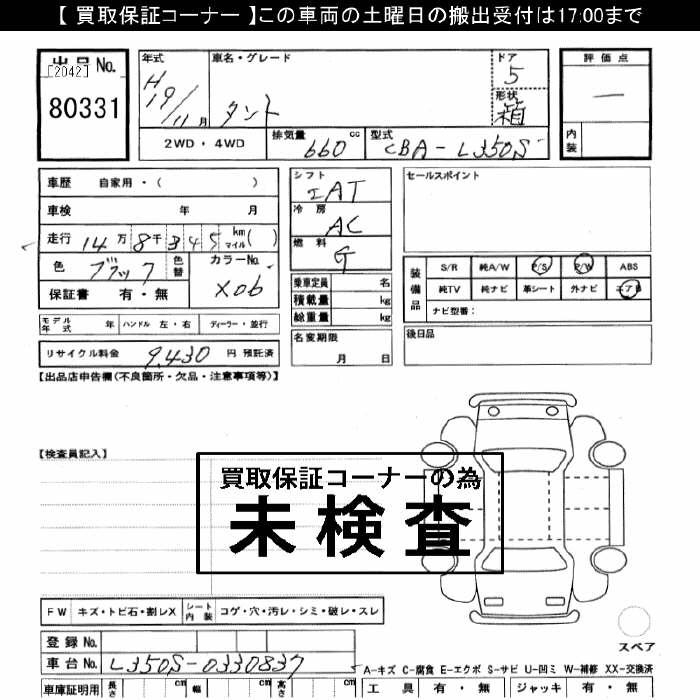 【 買取保証コーナー 】この車両の土曜日の搬出受付は17:00まで
出品 No.
[2042]
80331
年式
H19/11月
車名・グレード
タント
ドア
5
形状
箱
2WD・4WD
排気量
660 cc
型式
CBA-L350S
評価点
—
内装
車歴 自家用・( )
車検 年 月
走行 14万8千345 km マイル( )
色 ブラック
色替
カラーNo.
X06
保証書 有・無
シフト
IAT
冷房
AC
燃料
G
乗車定員 名
積載量 kg
総重量 kg
セールスポイント
装備品
S/R 純A/W P/S P/W ABS
純TV 純ナビ 革シート 外ナビ エアB
ナビ型番:
モデル年式 年 ハンドル 左・右 ディーラー・並行
名変期限
月 日
後日品
リサイクル料金 9,430 円 預託済
【出品店申告欄(不良箇所・欠品・注意事項等)】
【検査員記入】
買取保証コーナーの為
未検査
FW キズ・トビ石・割レX
シート内装 コゲ・穴・汚レ・シミ・破レ・スレ
スペア
登録 No.
車台 No. L350S-0330837
A-キズ C-腐食 E-エクボ S-サビ U-凹ミ W-補修 XX-交換済
車庫証明用 長さ cm 幅 cm 高さ cm
工具 有・無 ジャッキ 有・無